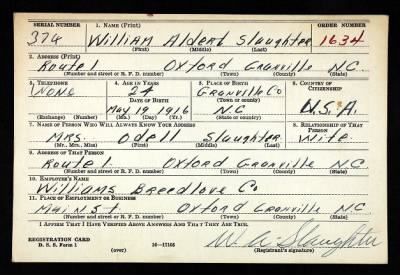 SERIAL NUMBER 1. NAME (Print) ORDER NUMBER
374 William Aldert Slaughter 1634
(First) (Middle) (Last)
2. ADDRESS (Print)
Route 1 Oxford Granville N.C.
(Number and street or R. F. D. number) (Town) (County) (State)
3. TELEPHONE 4. AGE IN YEARS 5. PLACE OF BIRTH 6. COUNTRY OF CITIZENSHIP
NONE 24 Granville Co
DATE OF BIRTH (Town or county)
May 19 1916 N.C. U.S.A.
(Exchange) (Number) (Mo.) (Day) (Yr.) (State or country)
7. NAME OF PERSON WHO WILL ALWAYS KNOW YOUR ADDRESS 8. RELATIONSHIP OF THAT PERSON
Mrs. Odell Slaughter Wife.
(Mr., Mrs., Miss) (First) (Middle) (Last)
9. ADDRESS OF THAT PERSON
Route 1. Oxford Granville N.C.
(Number and street or R. F. D. number) (Town) (County) (State)
10. EMPLOYER'S NAME
Williams Breedlove Co
11. PLACE OF EMPLOYMENT OR BUSINESS
Main St. Oxford Granville N.C.
(Number and street or R. F. D. number) (Town) (County) (State)
I AFFIRM THAT I HAVE VERIFIED ABOVE ANSWERS AND THAT THEY ARE TRUE.
REGISTRATION CARD
D. S. S. Form 1 16—17105 W. A. Slaughter
(over) (Registrant's signature)